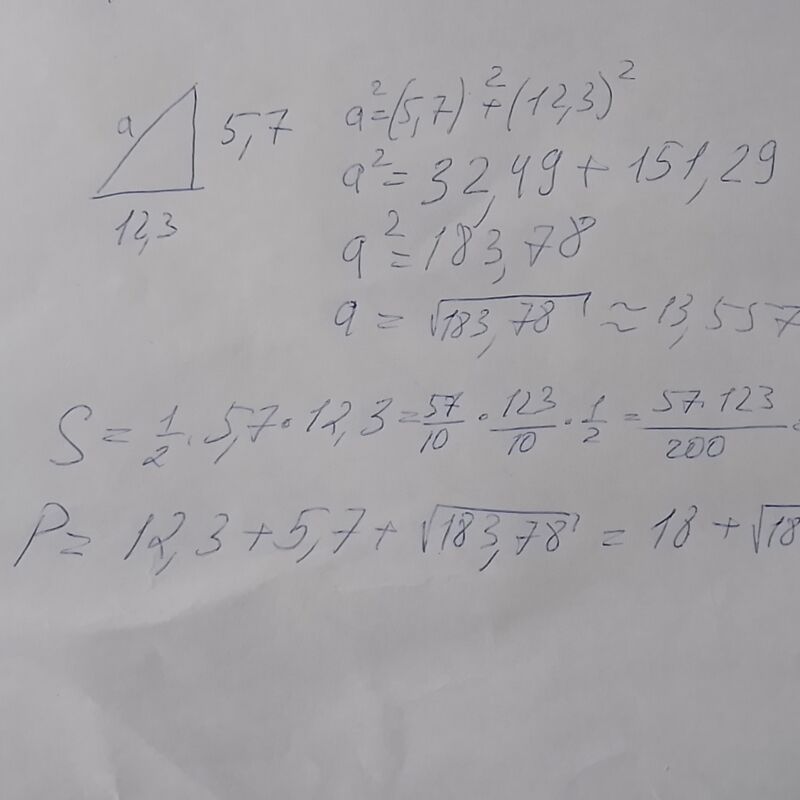 a
5,7
12,3
a²=(5,7)²+(12,3)²
a²=32,49+151,29
a²=183,78
a=√183,78≈13,557
S=1/2·5,7·12,3=57/10·123/10·1/2=57·123/200=
P=12,3+5,7+√183,78=18+√18